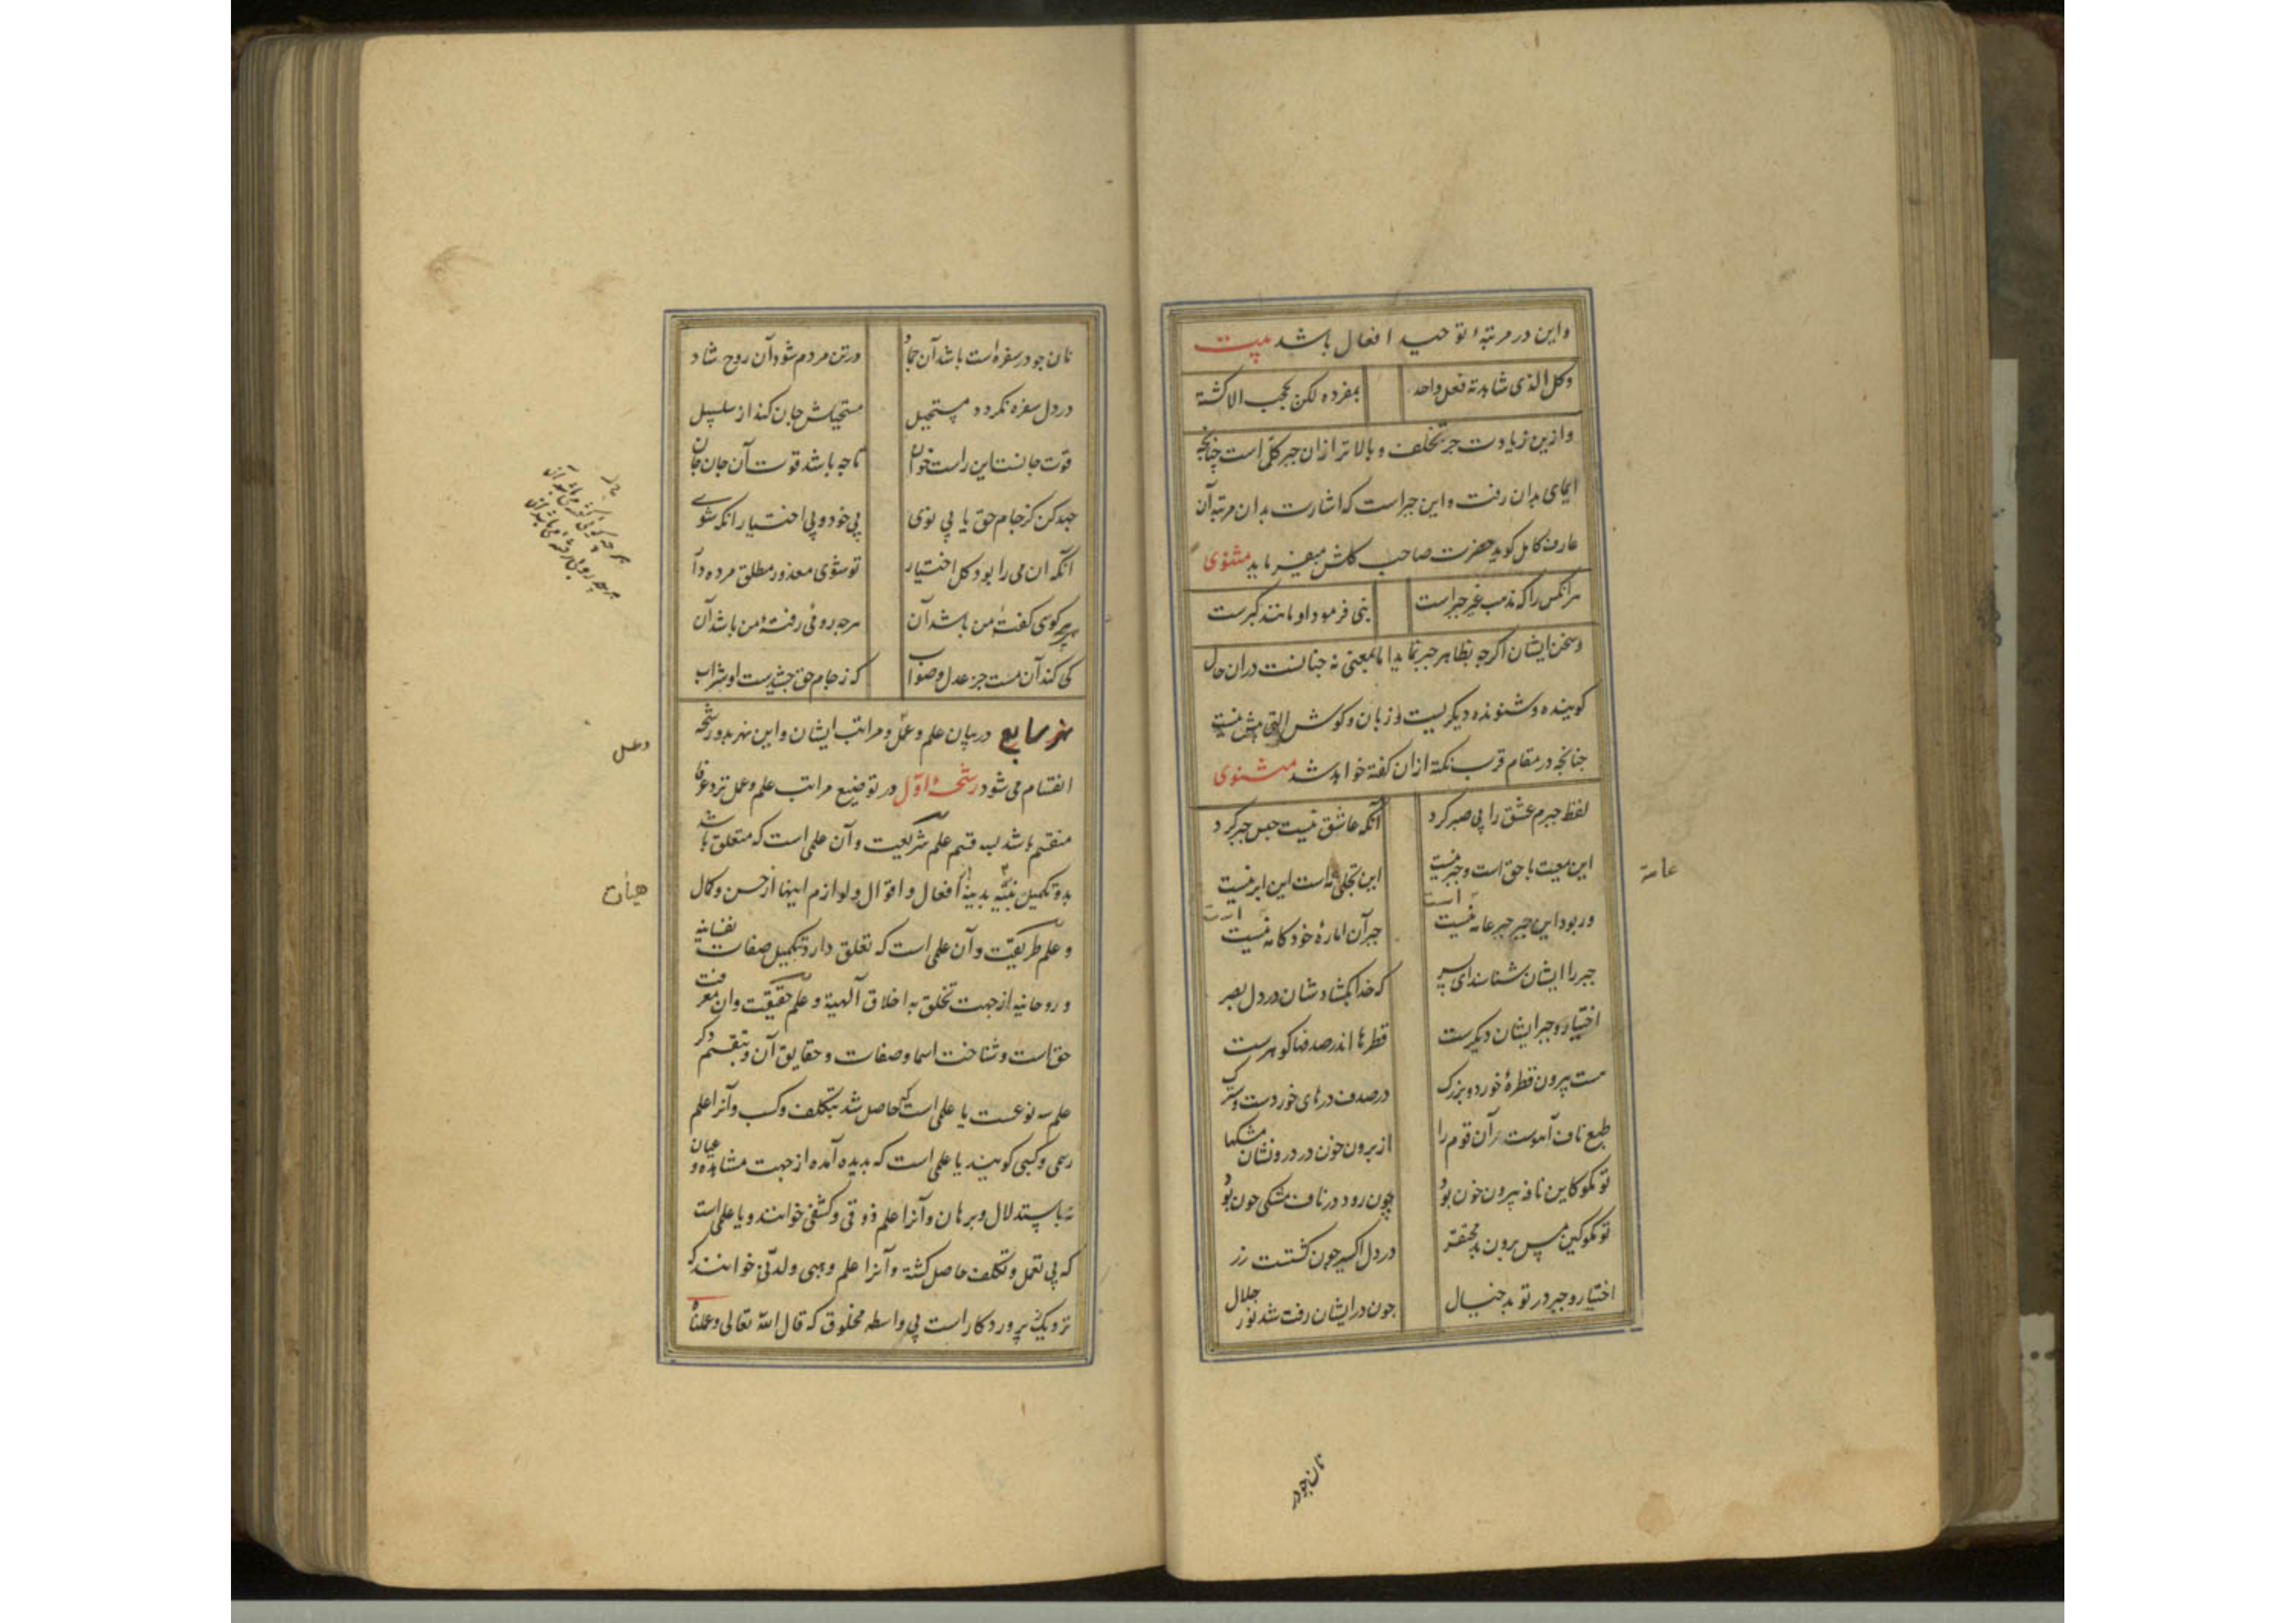 واین در مرتبۀ توحید افعال باشد بیت
وکل الذی شاهدته فعل واحد بمفرده لکن بحجب الاکنّة
وازین زیادت جبر تخلف وبالاتر ازان جبر کلّ است چنانچه
ایمای بدان رفت واین جبر است که اشارت بدان مرتبه آن
عارف کامل کوید حضرت صاحب کلشن میفرماید مثنوی
هر انکس را که مذهب غیر جبر است نبی فرمود او مانند کبرست
وسخن ایشان اکرچه بظاهر جبر نماید اما بمعنی نه چنانست دران حال
کوینده وشنونده دیکریست و زبان وکوش التی بیش نیست
چنانچه در مقام قرب نکتۀ ازان کفته خواهد شد مثنوی
لفظ جبرم عشق را بی صبر کرد آنکه عاشق نیست حبس جبر کرد
این معیت با حق است وجبر نیست این تجلی مه است این ابر نیست
ور بود این جبر جبر عامه نیست جبر آن امارۀ خودکامه نیست
جبر را ایشان شناسند ای پسر که خدا بکشادشان در دل بصر
اختیار وجبر ایشان دیکرست قطرها اندر صدفها کوهرست
هست بیرون قطرۀ خورد وبزرک در صدف درهای خوردست وسترک
طبع ناف آهوست آن قوم را از برون خون در درونشان مشکها
تو مکو کاین نافه بیرون خون بود چون رود در ناف مشکی چون بود
تو مکو کین مس برون بد محتقر در دل اکسیر چون کشتست زر
اختیار وجبر در تو بد خیال چون در ایشان رفت شد نور جلال
عامه
نان جو در
نان جو در سفره است باشد آن جماد در تن مردم شود آن روح شاد
در دل سفره نکردد مستحیل مستحیلش جان کند از سلسبیل
قوت جانست این راست خوان تا چه باشد قوت آن جان جان
جهد کن کز جام حق یابی نوی بی خود وبی اختیار انکه شوی
آنکه آن می را بود کل اختیار تو شوی معذور مطلق مرده وار
هرچه کوی کفتۀ من باشد آن هرچه روفی رفتۀ من باشد آن
کی کند آن مست جز عدل وصواب که ز جام حق چشیدست او شراب
نهر سابع در بیان علم وعمل ومراتب ایشان واین نهر بدو رشحه
انقسام می شود رشحۀ اوّل در توضیع مراتب علم وعمل نزد عرفا
منقسم باشد بسه قسم علم شریعت وآن علمی است که متعلق باشد
بدو تکمیل بدنیه افعال واقوال ولوازم اینها از حسن وکمال
وعلم طریقت وآن علمی است که تعلق دارد بتکمیل صفات نفسانیه
وروحانیه از جهت تخلق به اخلاق آلهیة وعلم حقیقت وان معرفت
حق است وشناخت اسما وصفات وحقایق آن وبتقسیم دکر
علم سه نوعست یا علمی است که حاصل شد بتکلف وکسب وآنرا علم
رسمی وکسبی کویند یا علمی است که پدیده آمده از جهت مشاهده وعیان
نه باستدلال وبرهان وآنرا علم ذوقی وکشفی خوانند ویا علمی است
که بی تعمل وتکلف حاصل کشته وآنرا علم وهبی ولدنّی خوانند که
نزدیک پروردکار است بی واسطه مخلوق که قال الله تعالی وعلمناه
وعمل
هیأت